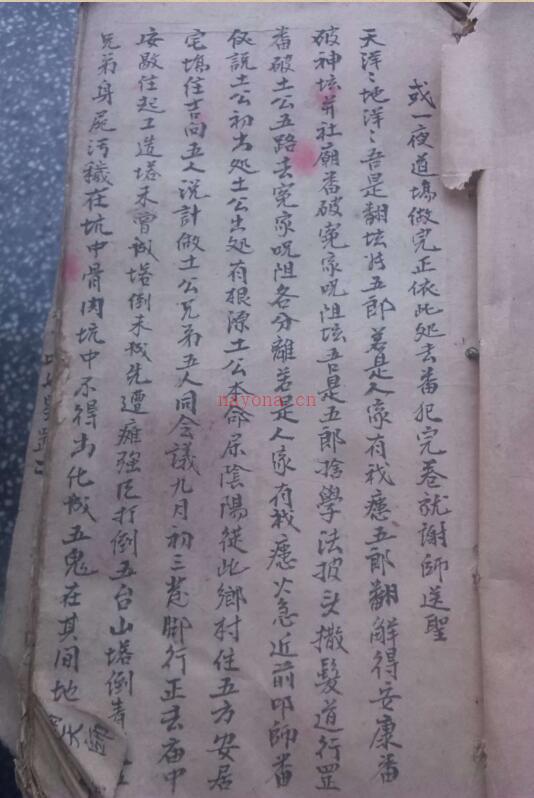 或一夜道塲做完正依此处去番犯完卷就謝師送聖
天洋〻地洋〻吾是翻坛将五郎若是人家有災瘧五郎翻解得安康番
破神坛并社廟番破冤家咒阻坛吾是五郎捨學法披头撒髮道行罡
番破土公五路去冤家咒阻各分離若是人家有災瘧火急近前叩師番
仪説土公初出処土公出処有根源土公本命屬陰陽従此鄉村住五方安居
宅塲住吉向五人説計做土公兄弟五人同会議九月初三 脚行正去庙中
住起工造塔未曾成塔倒未成先遭 強臣打倒五台山塔倒
兄弟身屍污穢在坑中骨肉坑中不得出化成五鬼在其間地
天
nayona.cn